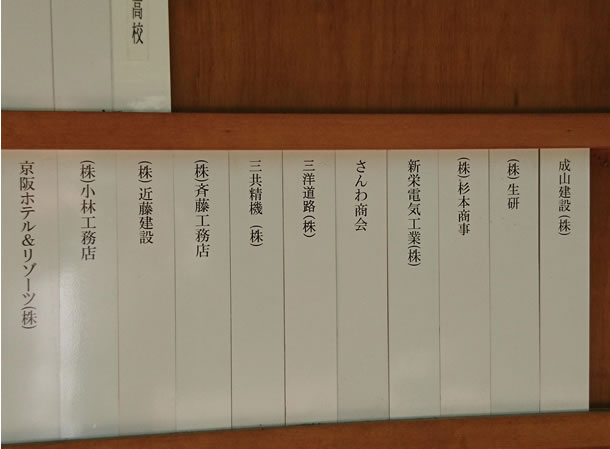 高校
成山建設(株)
(株)生研
(株)杉本商事
新栄電気工業(株)
さんわ商会
三洋道路(株)
三共精機 (株)
(株)斉藤工務店
(株)近藤建設
(株)小林工務店
京阪ホテル&リゾーツ(株)